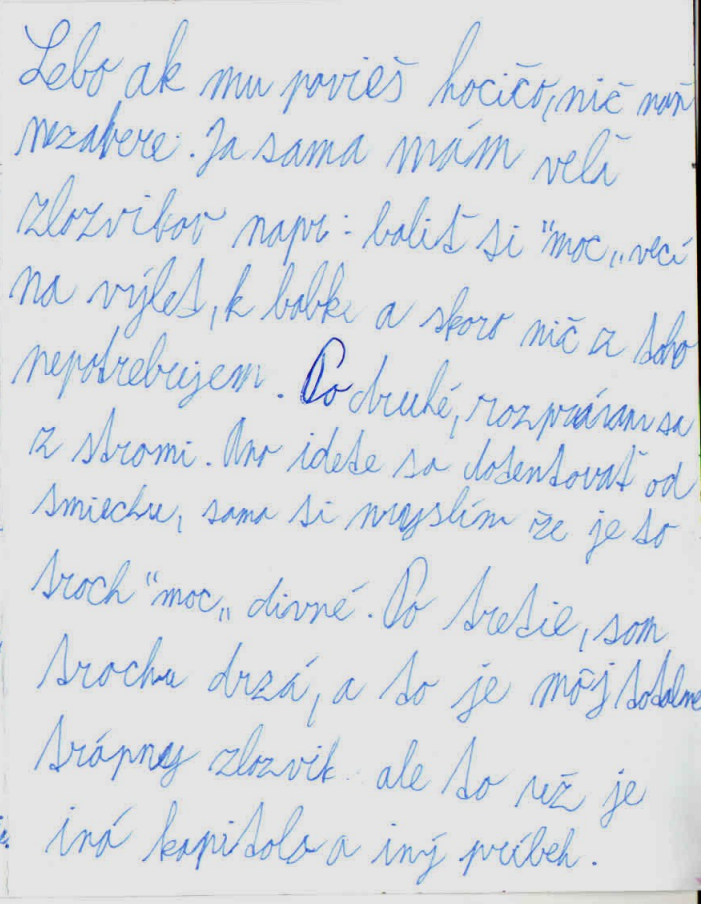 Lebo ak mu povieš hocičo, nič naň
nezabere. Ja sama mám velā
zlozvikov napr: baliť si "moc„ vecí
na výlet, k babke a skoro nič z toho
nepotrebujem. Po druhé, rozprávam sa
z stromi. Áno idete sa dotentovať od
smiechu, sama si myslím že je to
troch "moc„ divné. Po tretie, som
trochu drzá, a to je môj totalne
trápny zlozvik ale to už je
iná kapitola a iný príbeh.